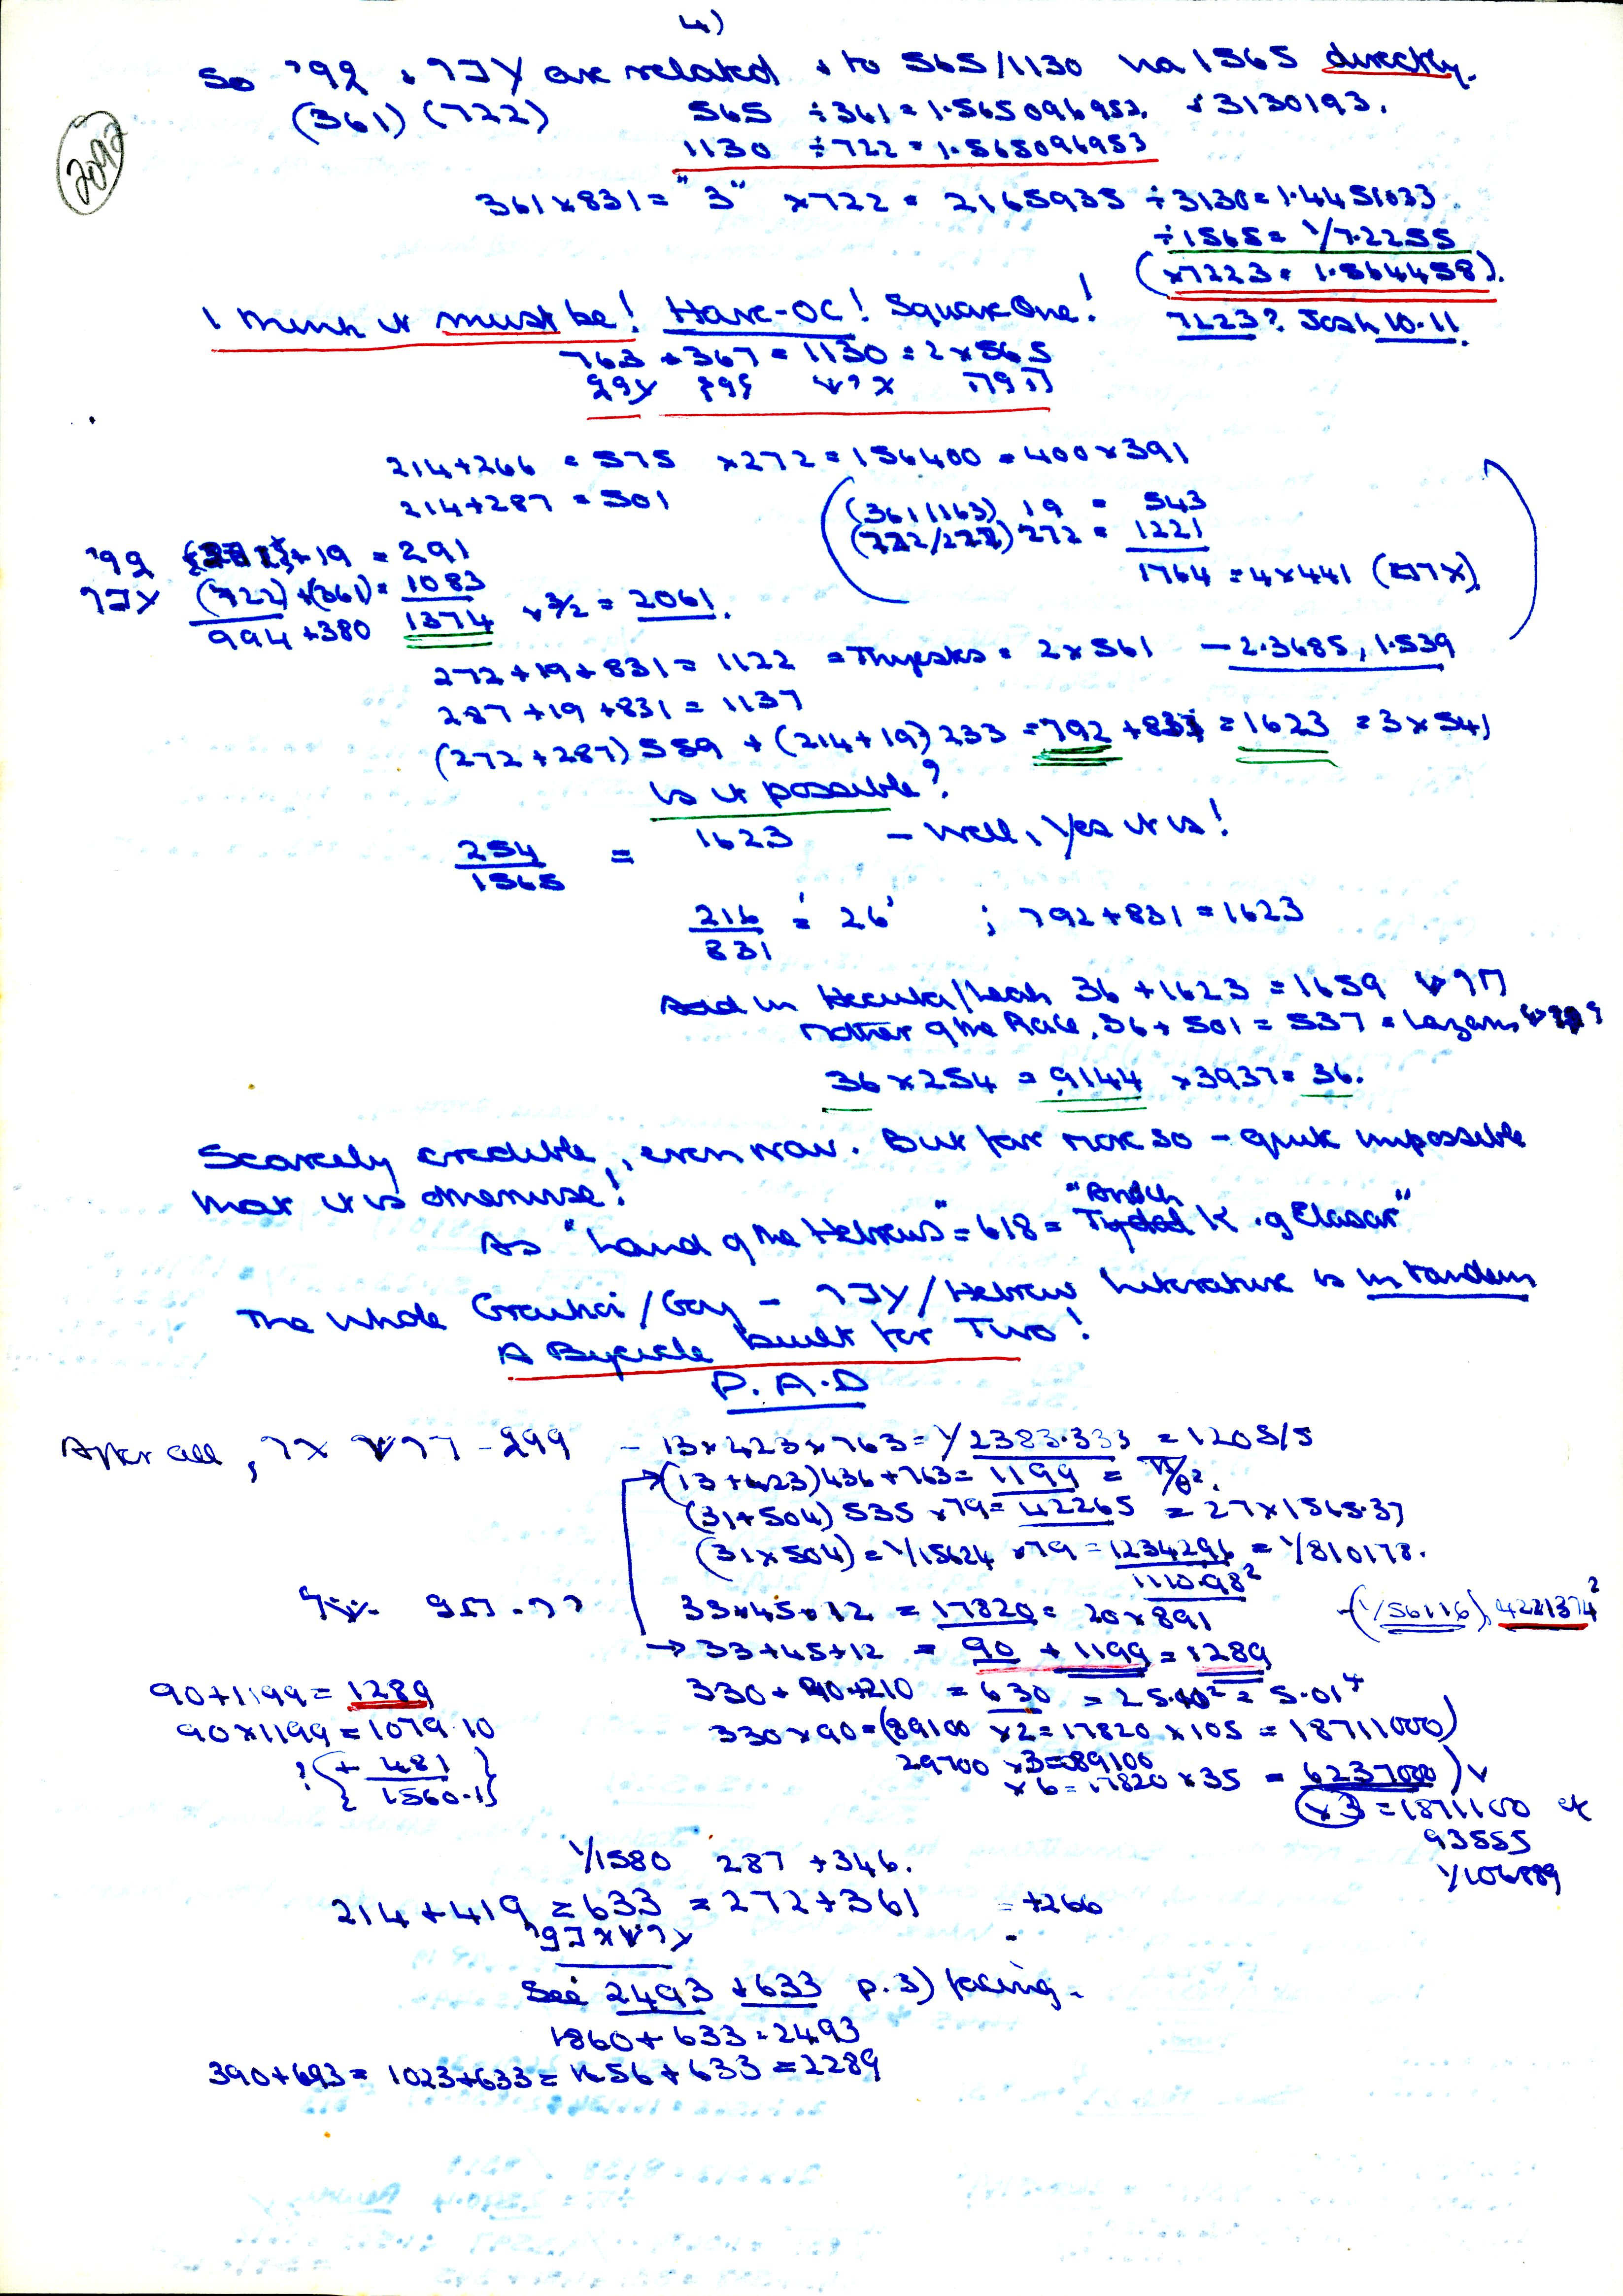 4)
So & are related & to 565/1130 via 1565 directly.
(361) (722) 565 ÷361 = 1.565096953. & 3130193.
2092
1130 ÷722 = 1.565096953
361×831 = "3" ×722 = 2165935 ÷3130 = 1.4451033
÷1565 = 1/7.2255
(×7223 = 1.564458).
I think it must be! Square One!
7223? Josh 10.11.
763 + 367 = 1130 = 2×565
214+266 = 575 ×272 = 156400 = 400×391
214+287 = 501
(361/163) 19 = 543
(722/227) 272 = 1221
1764 = 4×441
+19 = 291
(722) + (361) = 1083
994 +380 1374 ×3/2 = 2061.
272+19+831 = 1122 = Thyestes = 2×561 — 2.3685, 1.539
287+19+831 = 1137
(272+287) 559 + (214+19) 233 = 792 +831 = 1623 = 3×541
Is it possible?
254/1565 = 1623 – Well, Yes it is!
216/831 = '26' ; 792+831 = 1623
Add in Hecuba/Leah 36 +1623 = 1659
Mother of the Race, 36+ 501 = 537 =
36×254 = 9144 ×3937 = 36.
Scarcely credible, even now. But far more so – quite impossible
that it is otherwise!
As "Land of the Hebrews" = 618 = "Arioch K. of Elasar"
The whole / – /Hebrew Literature is in tandem
A Bycicle built for Two!
P.A.D
After all, – 13×423×763 = 1/2383.333 = 1205/5
→(13+423) 436+763 = 1199 =
(31+504) 535 ×79 = 42265 = 27×1565.37
(31×504) = 1/15624 ×79 = 1234296 = 1/810178.
1110.98²
33×45×12 = 17820 = 20×891 –(1/56116), 4221374²
→ 33+45+12 = 90 + 1199 = 1289
90+1199 = 1289 330 + 90+210 = 630 = 25.10² = 5.01⁴
90×1199 = 1079.10 330×90 = (89100 ×2 = 17820 ×105 = 18711000)
29700 ×3 = 89100
+ 481 ×6 = 17820 ×35 = 6237000) v
1560.1 (×3) = 1871100 et
93555
1/106889
1/1580 287 +346.
214+419 = 633 = 272+361 = +266
See 2493 + 633 p.3) facing.
1860+ 633 = 2493
390+693 = 1023+633 = 1656+633 = 2289